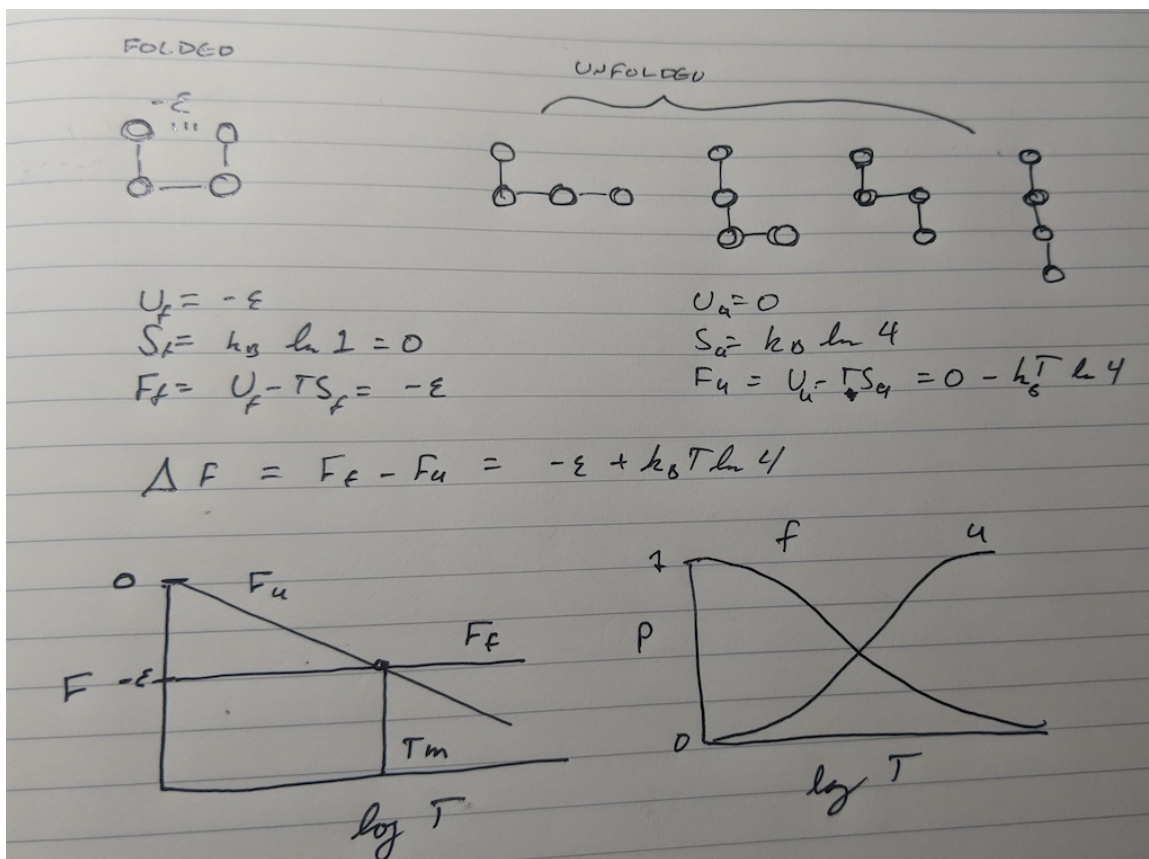 FOLDED
UNFOLDED
-ε
U_f = -ε
S_f = k_B ln 1 = 0
F_f = U_f - TS_f = -ε
U_u = 0
S_u = k_B ln 4
F_u = U_u - TS_u = 0 - k_B T ln 4
ΔF = F_f - F_u = -ε + k_B T ln 4
0
F_u
F_f
F
-ε
Tm
log T
f
u
1
P
0
log T